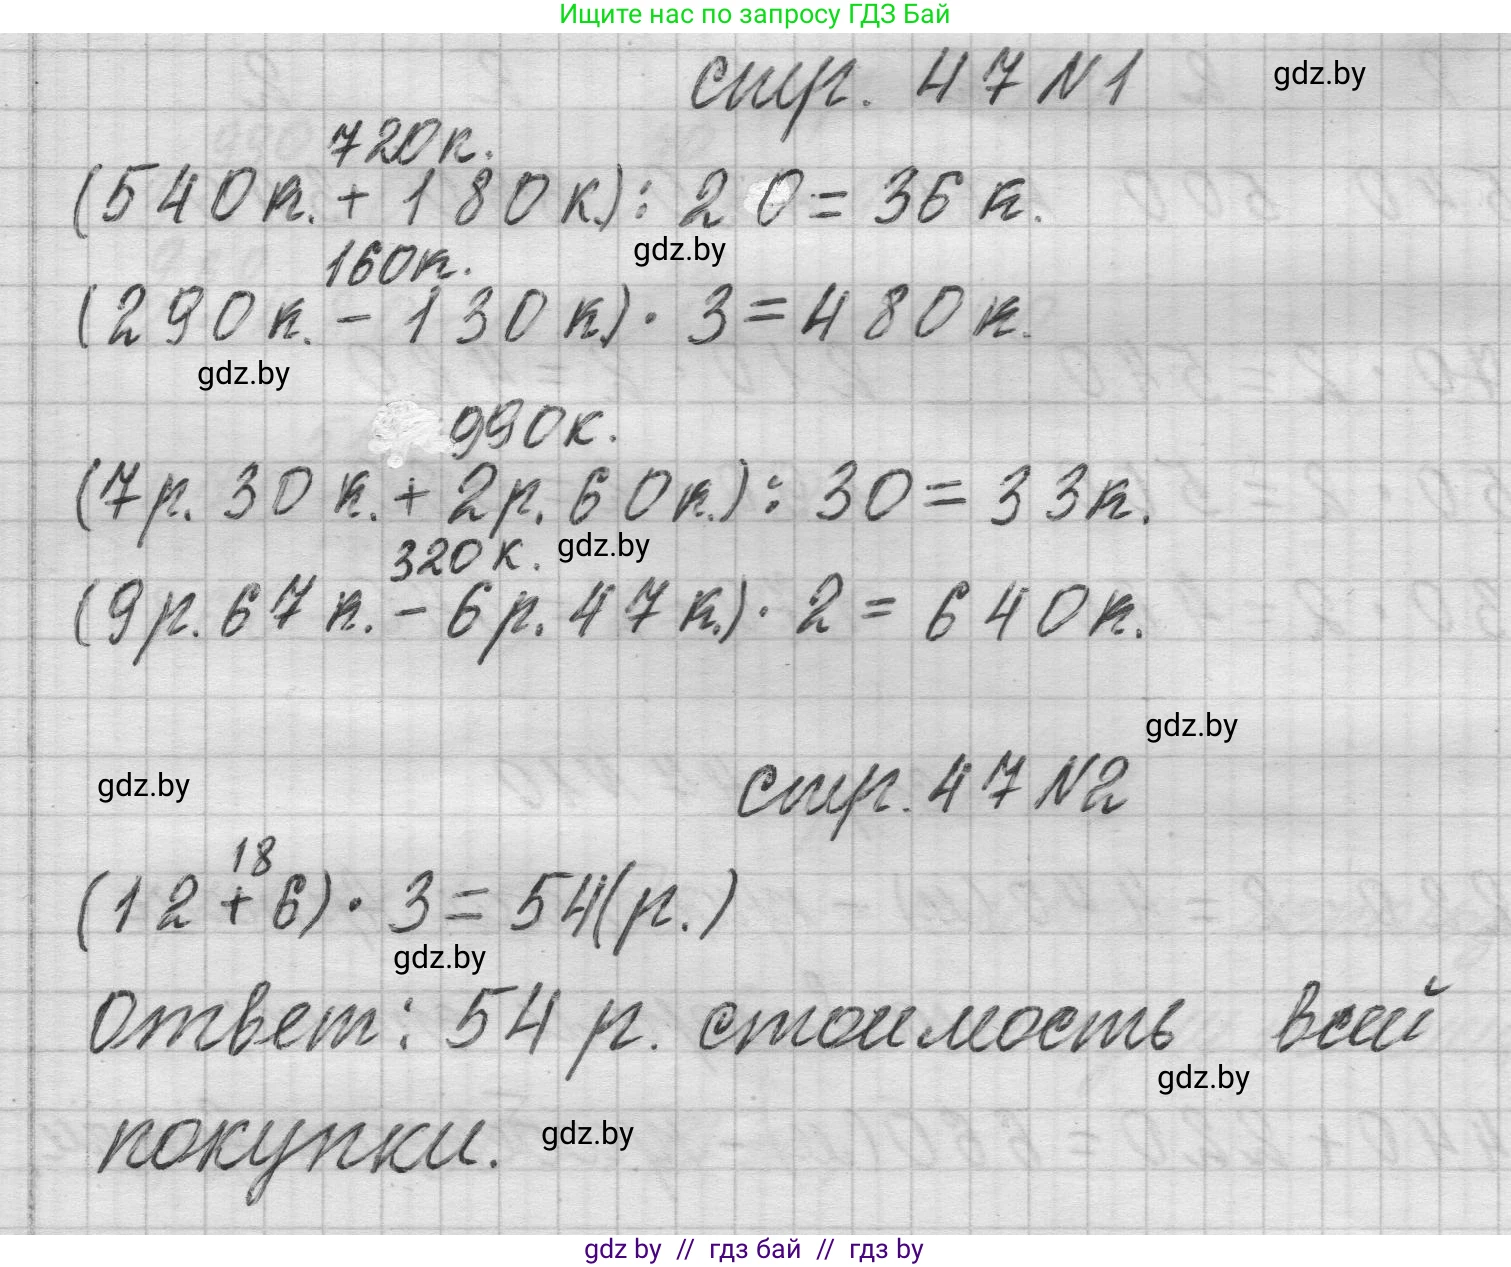 Ищите нас по запросу ГДЗ Бай
стр. 47 №1
gdz.by
720к.
(540к. + 180к.) : 20 = 36 к.
160к.
gdz.by
(290к. - 130к.) · 3 = 480 к.
gdz.by
990к.
(7р. 30 к. + 2р. 60к.) : 30 = 33к.
320 к.
gdz.by
(9р. 67к. - 6р. 47к.) · 2 = 640к.
gdz.by
gdz.by
стр. 47 №2
18
(12 + 6) · 3 = 54(р.)
gdz.by
Ответ: 54 р. стоимость всей
gdz.by
покупки.
gdz.by
gdz by // гдз бай // гдз by